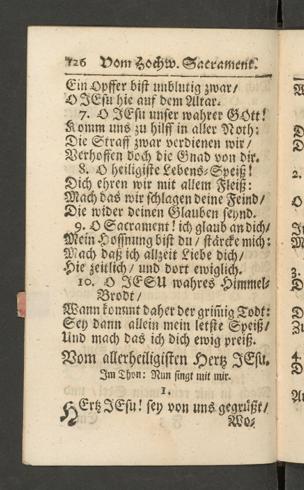 126 Vom Hochw. Sacrament.
Ein Opffer bist unblutig zwar/
O JEsu hie auf dem Altar.
7. O JEsu unser wahrer GOtt!
Komm uns zu hilff in aller Noth:
Die Straff zwar verdienen wir/
Verhoffen doch die Gnad von dir.
8. O heiligiste Lebens-Speiß!
Dich ehren wir mit allem Fleiß:
Mach das wir schlagen deine Feind/
Die wider deinen Glauben seynd.
9. O Sacrament! ich glaub an dich/
Mein Hoffnung bist du/ stärcke mich:
Mach daß ich allzeit Liebe dich/
Hie zeitlich/ und dort ewiglich.
10. O JESU wahres Himmel-
Brodt/
Wann kommt daher der grimig Todt:
Sey dann allein mein letste Speiß/
Und mach das ich dich ewig preiß.
Vom allerheiligisten Hertz JEsu.
Im Thon: Nun singt mit mir.
1.
HErtz JEsu! sey von uns gegrüßt/
Wo-